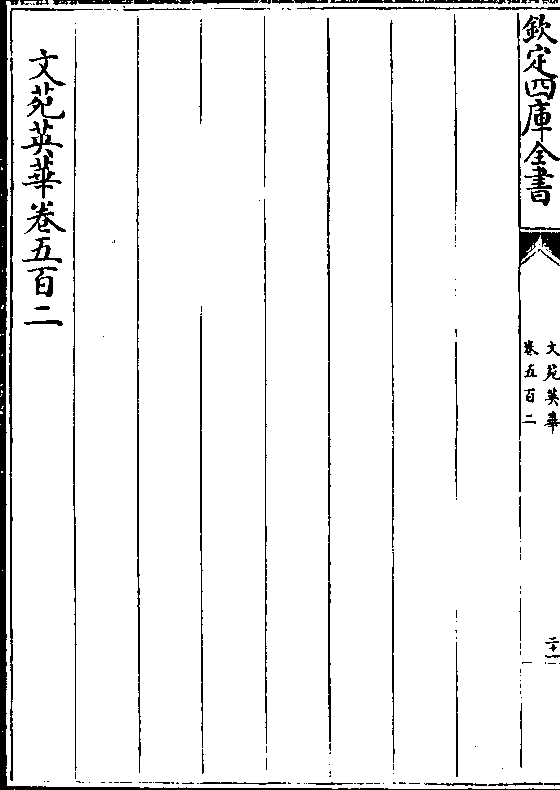 欽定四庫全書
文苑英華
卷五百二
二十一
文苑英華卷五百二